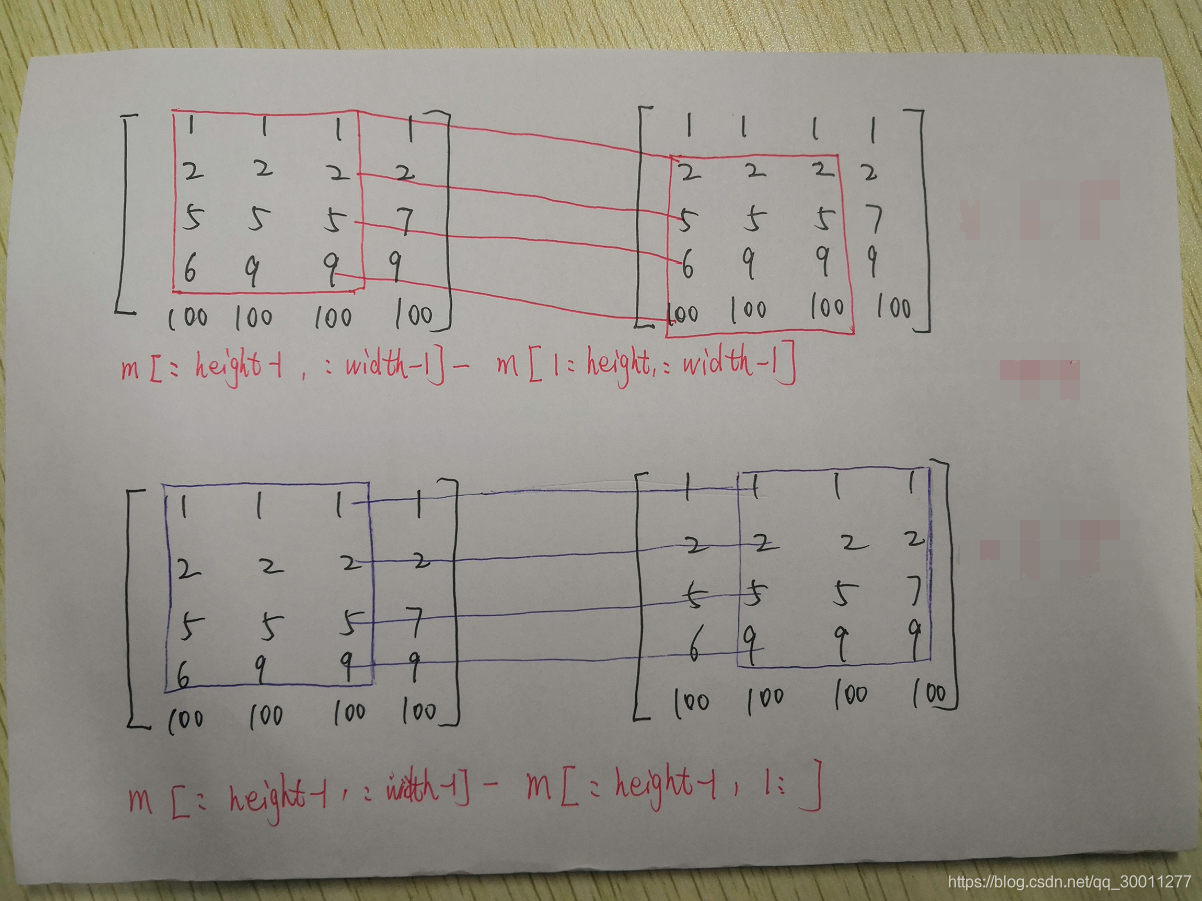 1 1 1 1 1 1 1 1
2 2 2 2 2 2 2 2
5 5 5 7 5 5 5 7
6 9 9 9 6 9 9 9
100 100 100 100 100 100 100 100
m[:height-1, :width-1] - m[1:height,:width-1]
1 1 1 1 1 1 1 1
2 2 2 2 2 2 2 2
5 5 5 7 5 5 5 7
6 9 9 9 6 9 9 9
100 100 100 100 100 100 100 100
m[:height-1, :width-1] - m[:height-1, 1:]
https://blog.csdn.net/qq_30011277